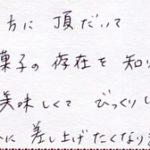 方に 頂だいて
菓子の 存在を 知り
美味しくて びっくりし
に 差し上げたくなりま